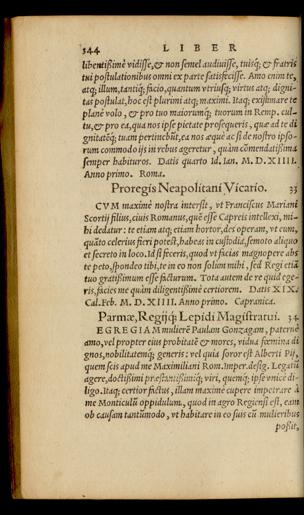 344 LIBER
libentißimè vidisse, & non semel audiuisse, tuisq; & fratris
tui postulationibus omni ex parte satisfecisse. Amo enim te,
atq; illum, tantiq́; facio, quantum vtriusq; virtus atq; digni-
tas postulat, hoc est plurimi atq; maximi. Itaq; existimare te
planè volo, & pro tuo maiorumq́; tuorum in Remp. cul-
tu, & pro ea, qua nos ipse pietate prosequeris, quæ ad te di
gnitatẽq; tuam pertinebũt, ea nos æquè ac si de nostro ipso-
rum commodo ijs in rebus ageretur, quàm cõmendatißima
semper habituros. Datis quarto Id. Ian. M. D. XIIII.
Anno primo. Roma.
Proregis Neapolitani Vicario. 33
CVM maximè nostra intersit, vt Franciscus Mariani
Scortij filius, ciuis Romanus, quẽ esse Capreis intellexi, mi-
hi dedatur: te etiam atq; etiam hortor, des operam, vt cum,
quàto celerius fieri potest, habeas in custodia, semoto aliquo
et secreto in loco. Id si feceris, quod vt facias magnopere abs
te peto, spondeo tibi, te in eo non solum mihi, sed Regi etiã
tuo gratißimum esse facturum. Tota autem de re quid ege-
ris, facies me quàm diligentißimè certiorem. Datis XIX.
Cal. Feb. M. D. XIIII. Anno primo. Capranica.
Parmæ, Regijq; Lepidi Magistratui. 34
EGREGIAM mulierẽ Paulam Gonzagam, paternè
amo, vel propter eius probitatẽ & mores, vidua fœmina di
gnos, nobilitatemq́; generis: vel quia soror est Alberti Pij,
quem scis apud me Maximiliani Rom. Imper. desig. Legatũ
agere, doctißimi præstantißimiq́; viri, quemq́; ipse vnicè di-
ligo. Itaq; certior factus, illam maximè cupere impetrare à
me Monticulũ oppidulum, quod in agro Regiensi est, eam
ob causam tantũmodo, vt habitare in eo suis cũ mulieribus
possit,